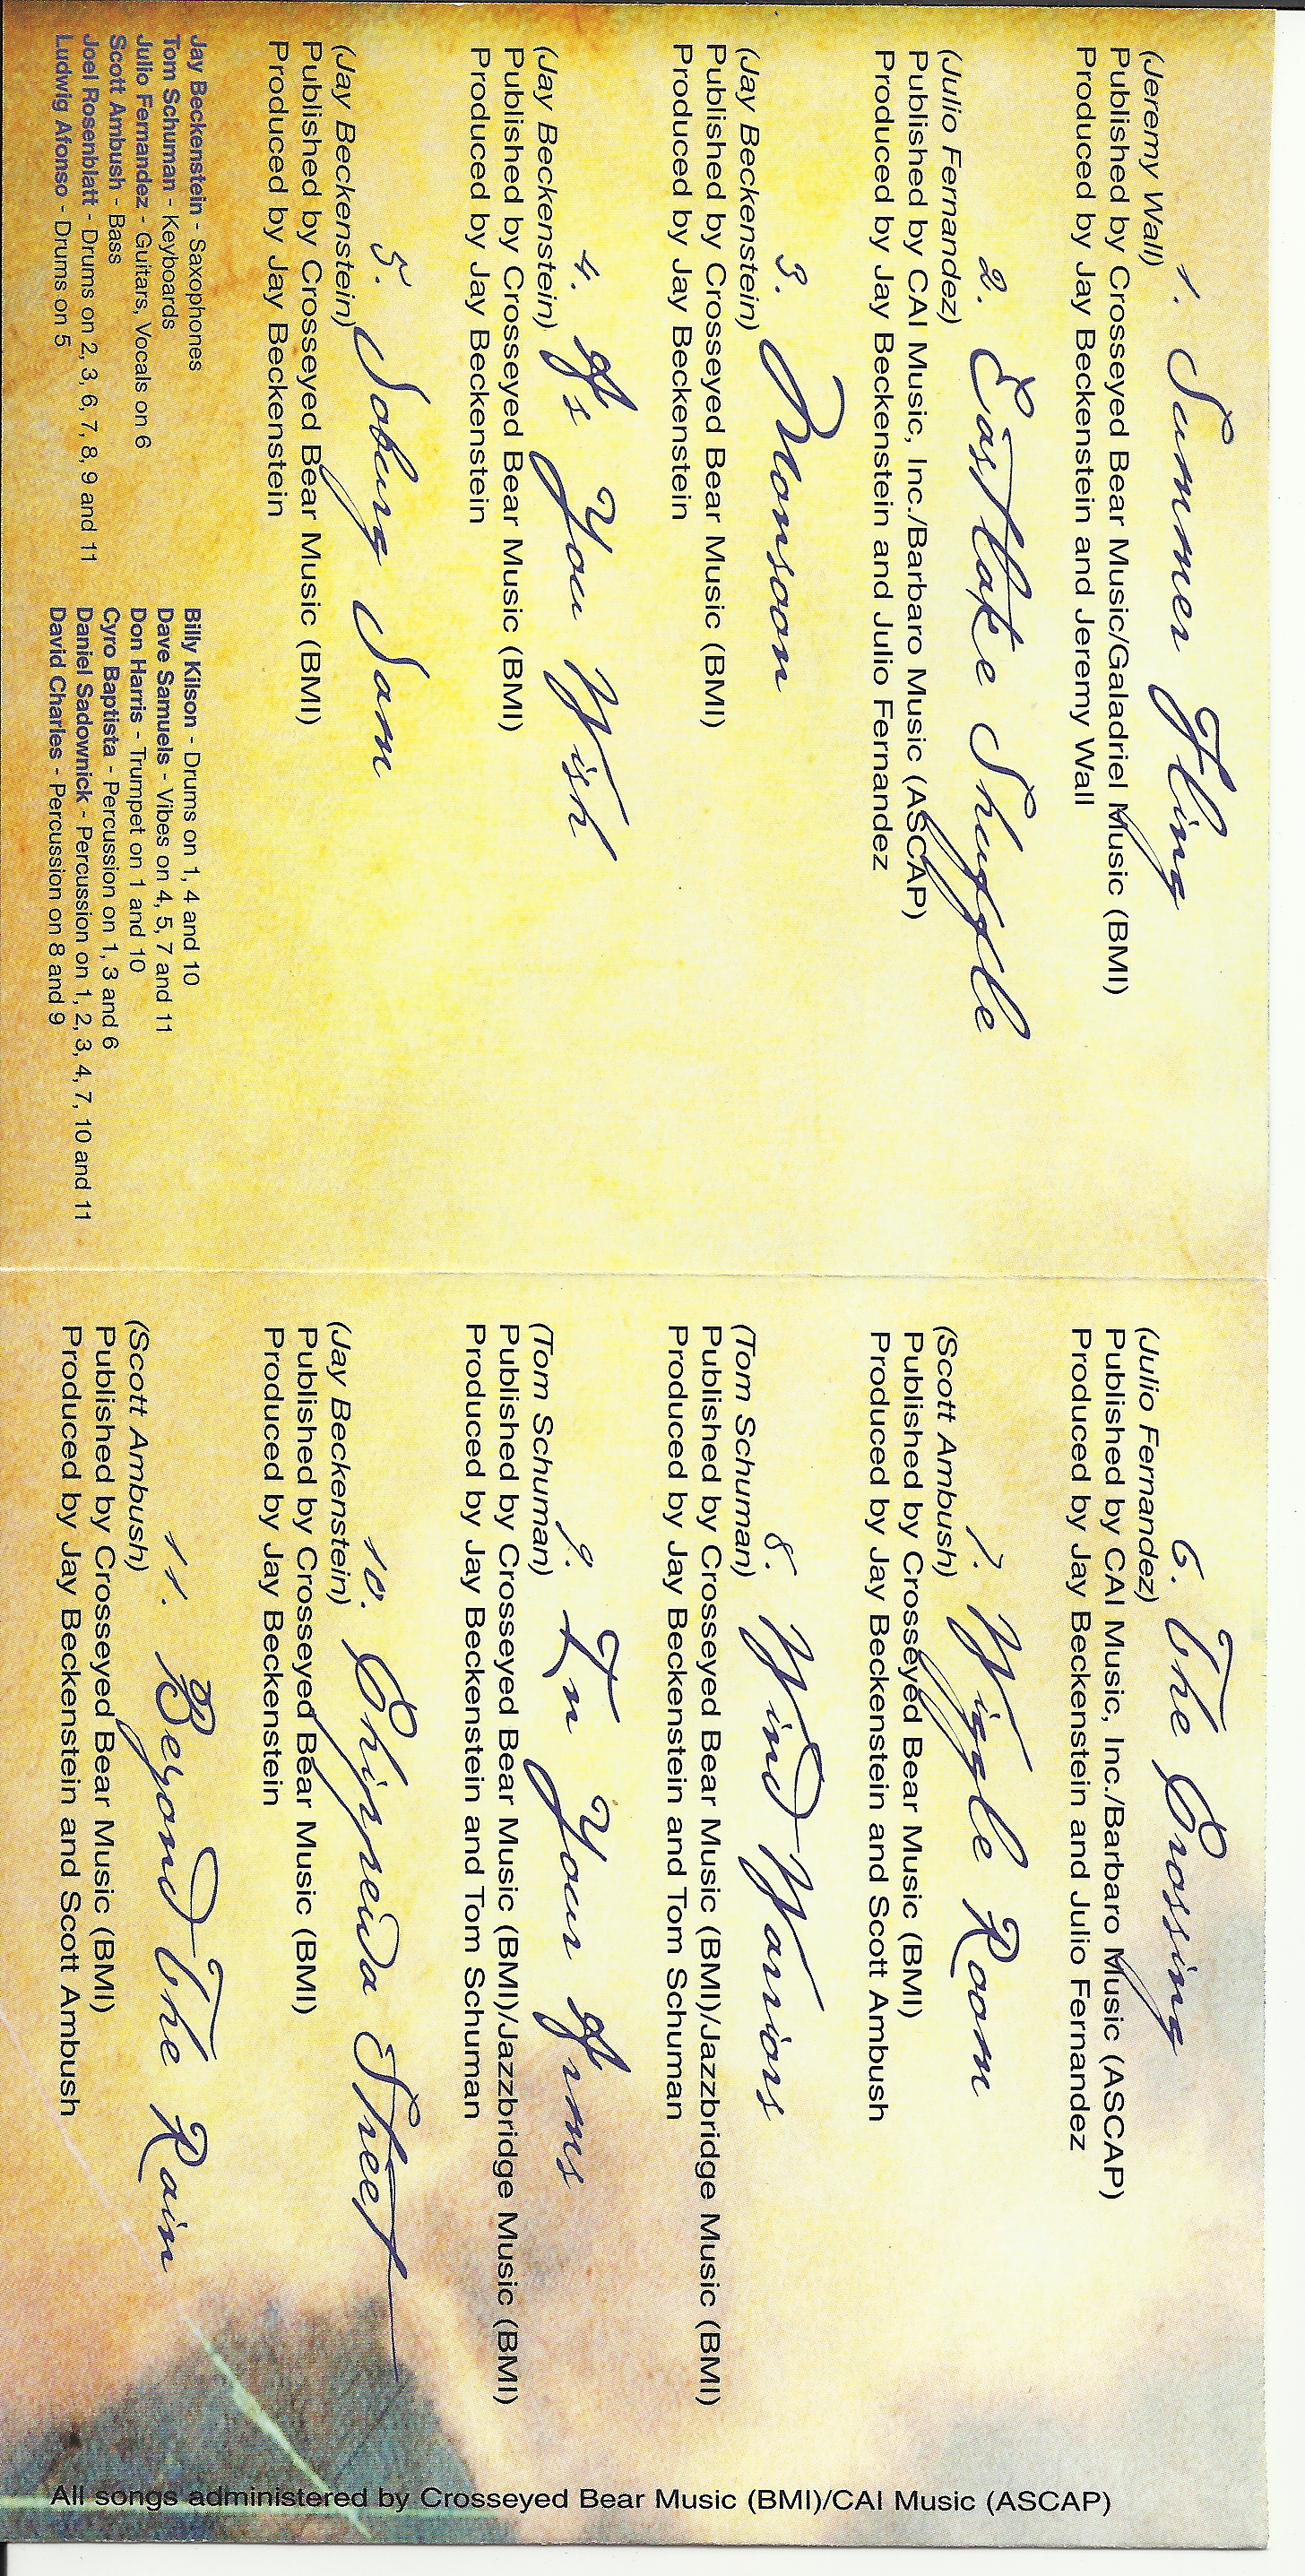 1. Summer Fling
(Jeremy Wall)
Published by Crosseyed Bear Music/Galadriel Music (BMI)
Produced by Jay Beckenstein and Jeremy Wall
2. Eastlake Shuffle
(Julio Fernandez)
Published by CAI Music, Inc./Barbaro Music (ASCAP)
Produced by Jay Beckenstein and Julio Fernandez
3. Monsoon
(Jay Beckenstein)
Published by Crosseyed Bear Music (BMI)
Produced by Jay Beckenstein
4. As You Wish
(Jay Beckenstein)
Published by Crosseyed Bear Music (BMI)
Produced by Jay Beckenstein
5. Soburg Sam
(Jay Beckenstein)
Published by Crosseyed Bear Music (BMI)
Produced by Jay Beckenstein
Jay Beckenstein - Saxophones
Tom Schuman - Keyboards
Julio Fernandez - Guitars, Vocals on 6
Scott Ambush - Bass
Joel Rosenblatt - Drums on 2, 3, 6, 7, 8, 9 and 11
Ludwig Afonso - Drums on 5
Billy Kilson - Drums on 1, 4 and 10
Dave Samuels - Vibes on 4, 5, 7 and 11
Don Harris - Trumpet on 1 and 10
Cyro Baptista - Percussion on 1, 3 and 6
Daniel Sadownick - Percussion on 1, 2, 3, 4, 7, 10 and 11
David Charles - Percussion on 8 and 9
6. The Crossing
(Julio Fernandez)
Published by CAI Music, Inc./Barbaro Music (ASCAP)
Produced by Jay Beckenstein and Julio Fernandez
7. Wiggle Room
(Scott Ambush)
Published by Crosseyed Bear Music (BMI)
Produced by Jay Beckenstein and Scott Ambush
8. Wind Warriors
(Tom Schuman)
Published by Crosseyed Bear Music (BMI)/Jazzbridge Music (BMI)
Produced by Jay Beckenstein and Tom Schuman
9. In Your Arms
(Tom Schuman)
Published by Crosseyed Bear Music (BMI)/Jazzbridge Music (BMI)
Produced by Jay Beckenstein and Tom Schuman
10. Chippewa Street
(Jay Beckenstein)
Published by Crosseyed Bear Music (BMI)
Produced by Jay Beckenstein
11. Beyond The Rain
(Scott Ambush)
Published by Crosseyed Bear Music (BMI)
Produced by Jay Beckenstein and Scott Ambush
All songs administered by Crosseyed Bear Music (BMI)/CAI Music (ASCAP)